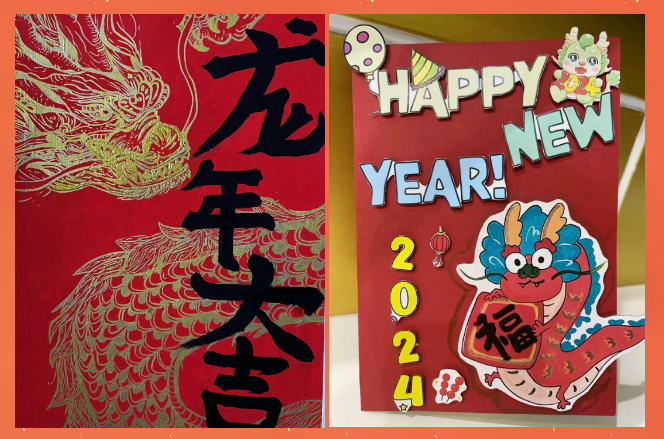 龙
年
大
吉
HAPPY
NEW
YEAR!
2
0
2
4
福